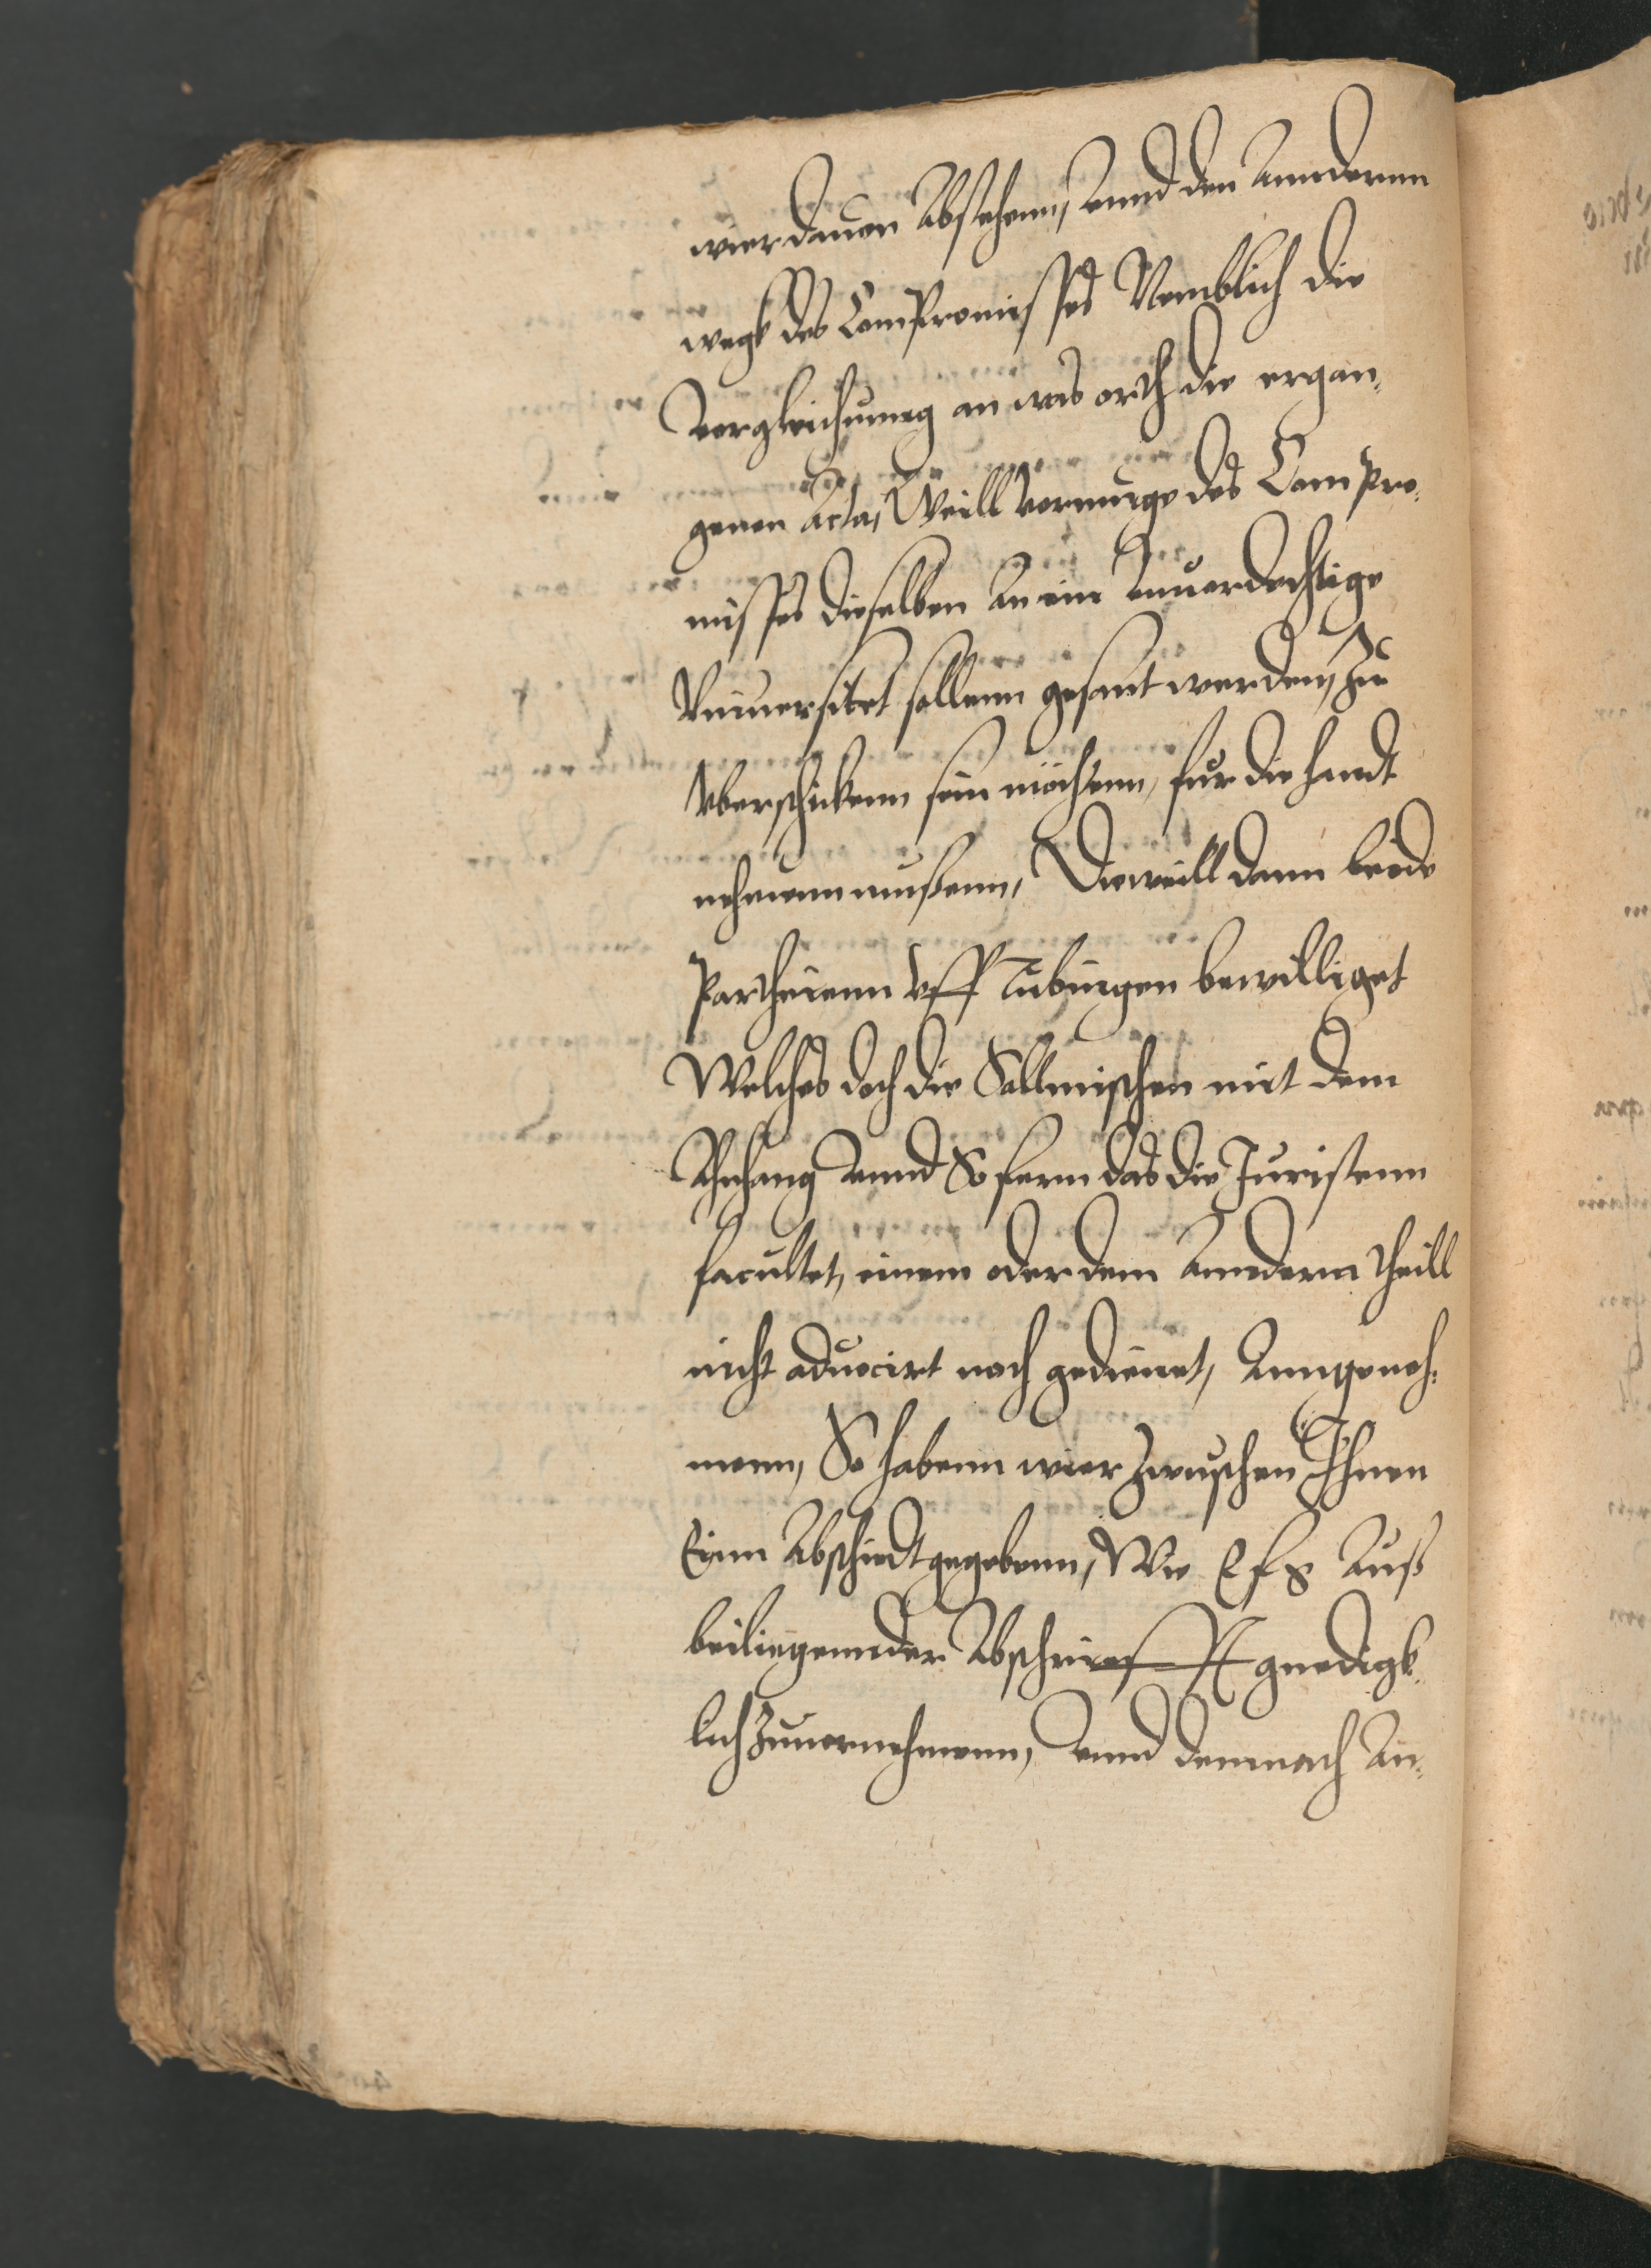 wier dauon Abstehenn, Vnnd den Annderenn
wegk des Compromisses Nemblich die
Vergleichunng an was orth die ergan,
genen Acta, Weill vermuge des Compro,
misses dieselben An ein Vnuerdechtige
Vniuersitet sollenn gesant werden, Zu
Vberschickenn sein möchtenn, fur die handt
nehmenn mußenn, Dieweill dann beide
Partheienn vff Tubingen bewilliget
Welches doch die Sallmischen mit dem
Anhang Vnnd So fern das die Juristenn
facultet, einem oder dem Anndern theill
nicht aduocirt noch gedienet, Anngeneh,
menn, So habenn wier Zwuschen Ihnen
Einn Abschiedt gegebenn, Wie E f g Auß
beiliegennder Abschrieft gnedigk,
lich Zuuernehmenn, Vnnd demnach An,